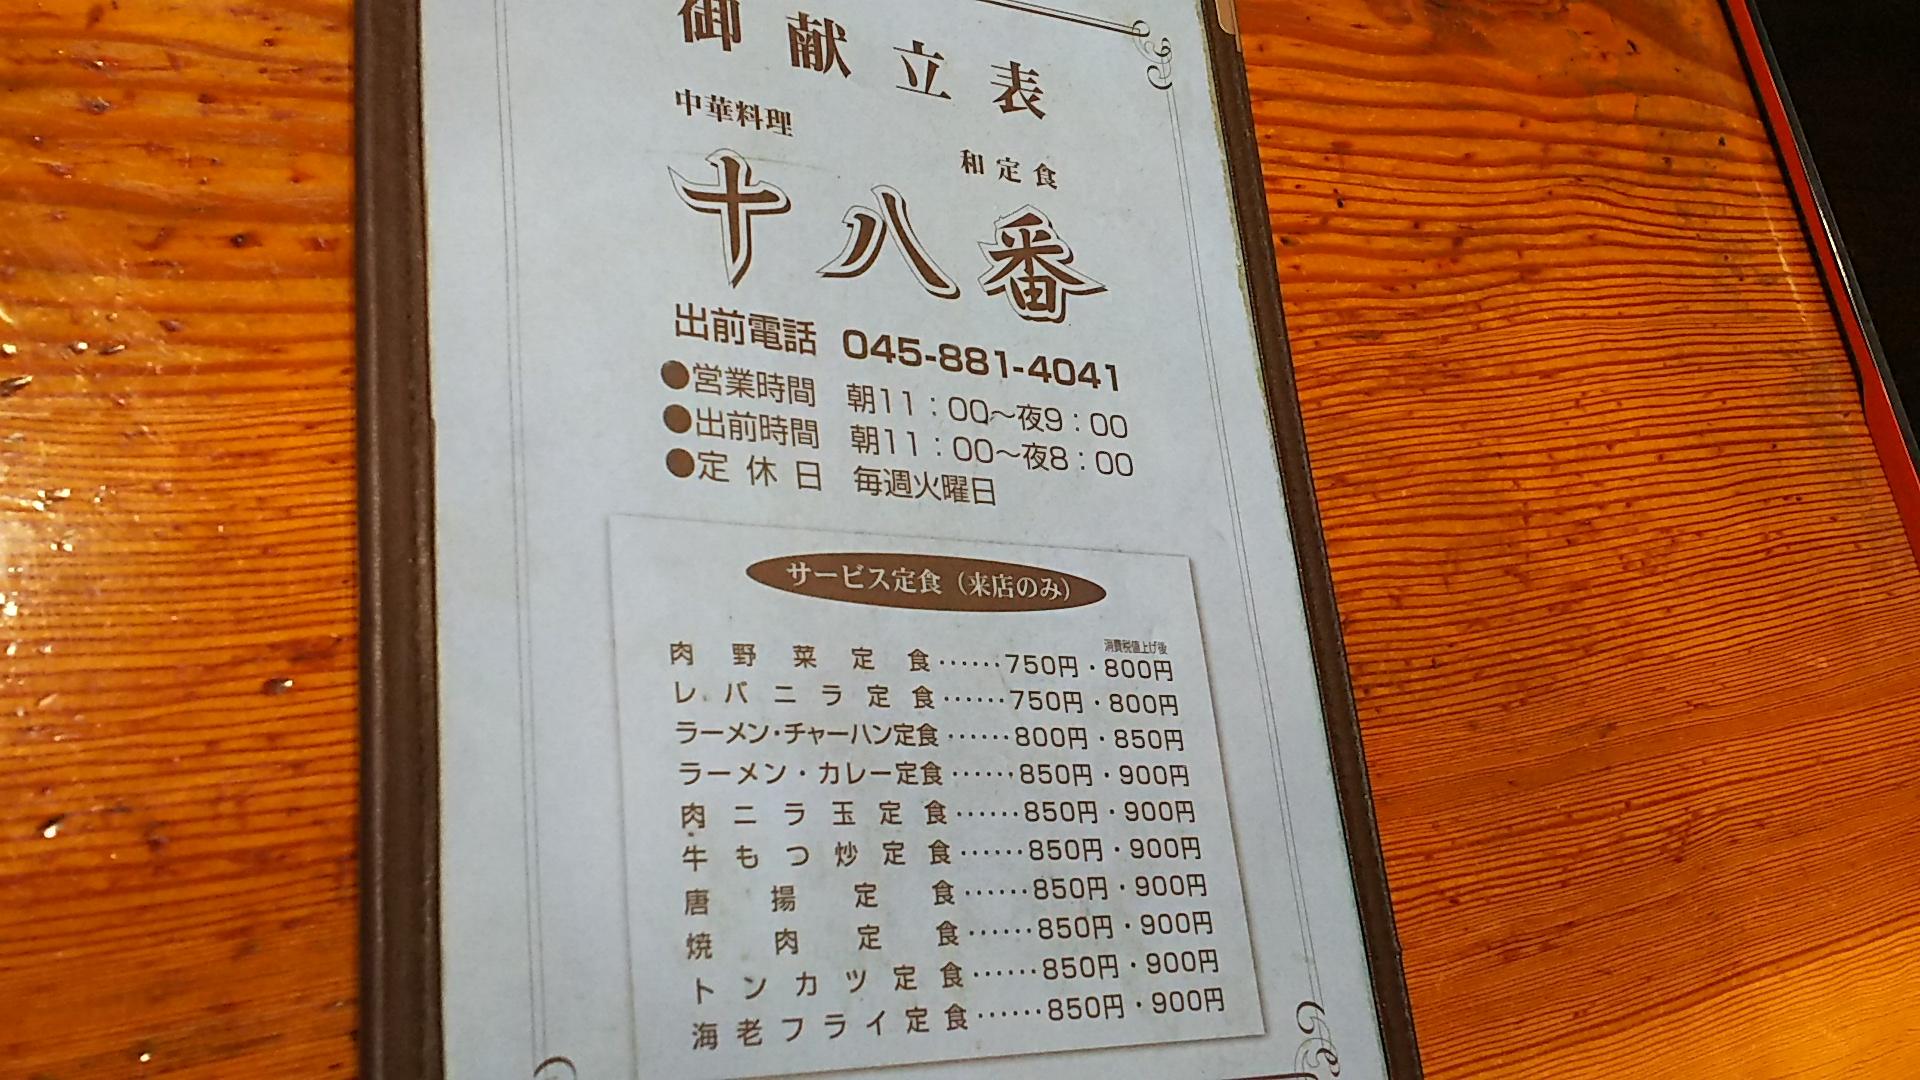 御献立表
中華料理
和定食
十八番
出前電話 045-881-4041
●営業時間 朝11：00～夜9：00
●出前時間 朝11：00～夜8：00
●定休日 毎週火曜日
サービス定食（来店のみ）
消費税値上げ後
肉野菜定食……750円・800円
レバニラ定食……750円・800円
ラーメン・チャーハン定食……800円・850円
ラーメン・カレー定食……850円・900円
肉ニラ玉定食……850円・900円
牛もつ炒定食……850円・900円
唐揚定食……850円・900円
焼肉定食……850円・900円
トンカツ定食……850円・900円
海老フライ定食……850円・900円